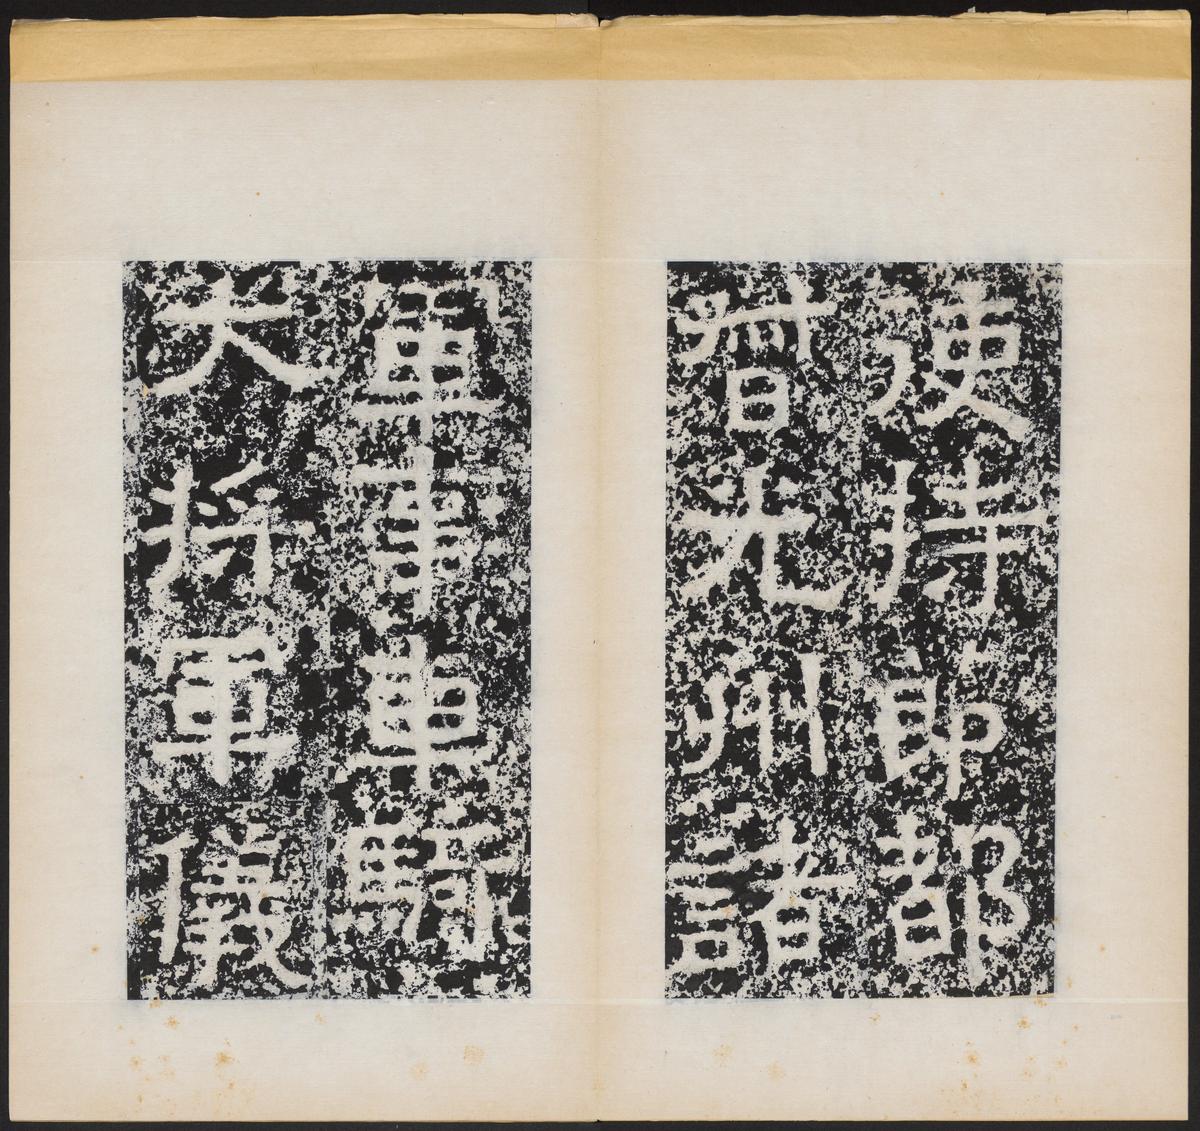 使持節都
督光州諸
軍事車騎
大將軍儀